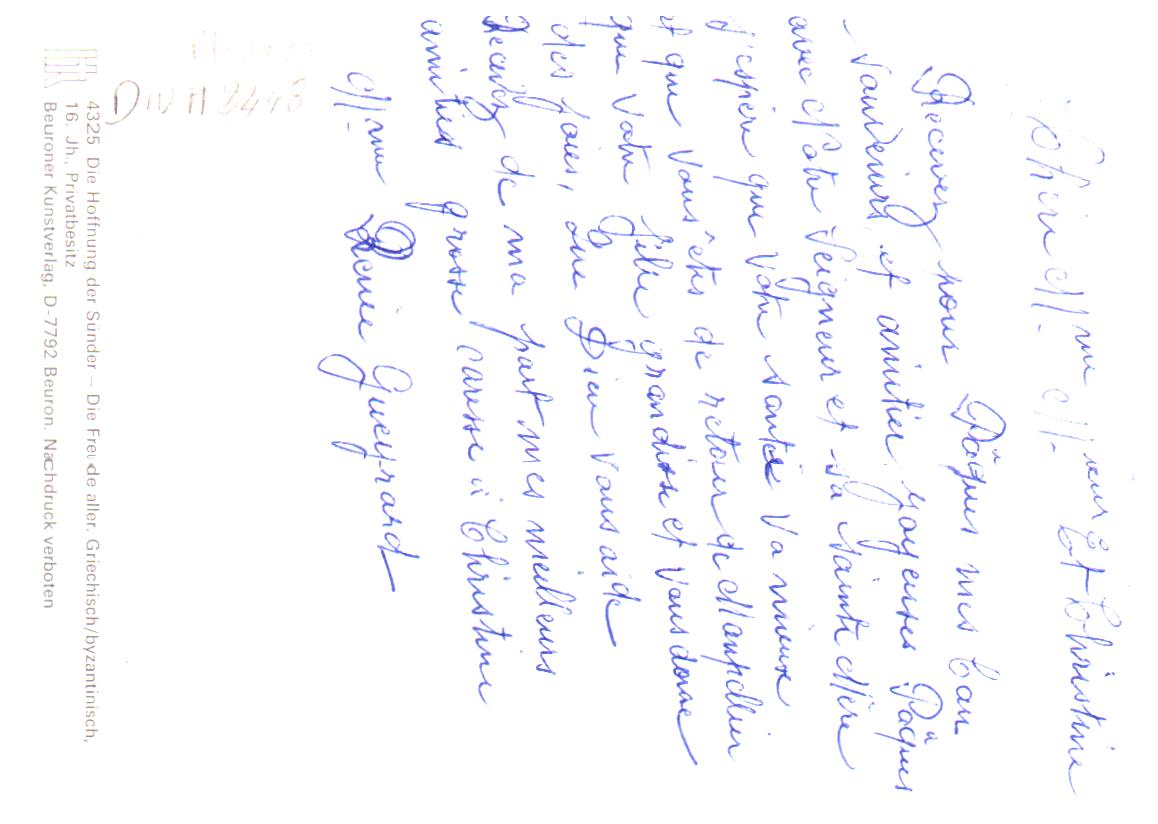 Chère M.me M.sieur Et Christine
Recevez pour Pâques mes bon
souvenirs et amitier joyeuses Pâques
avec Notre Seigneur et sa Sainte Mère
J'espère que Votre santée va mieux
et que Vous êtes de retour de Manpellier
que Votre fille grandisse et Vous donne
des joies, que Dieu Vous aide
Recevez de ma part mes meilleurs
amitiés grosse caresse à Christine
M.me Renée Gueyrard
4325 Die Hoffnung der Sünder – Die Freude aller. Griechisch/byzantinisch,
16. Jh., Privatbesitz
Beuroner Kunstverlag, D-7792 Beuron. Nachdruck verboten